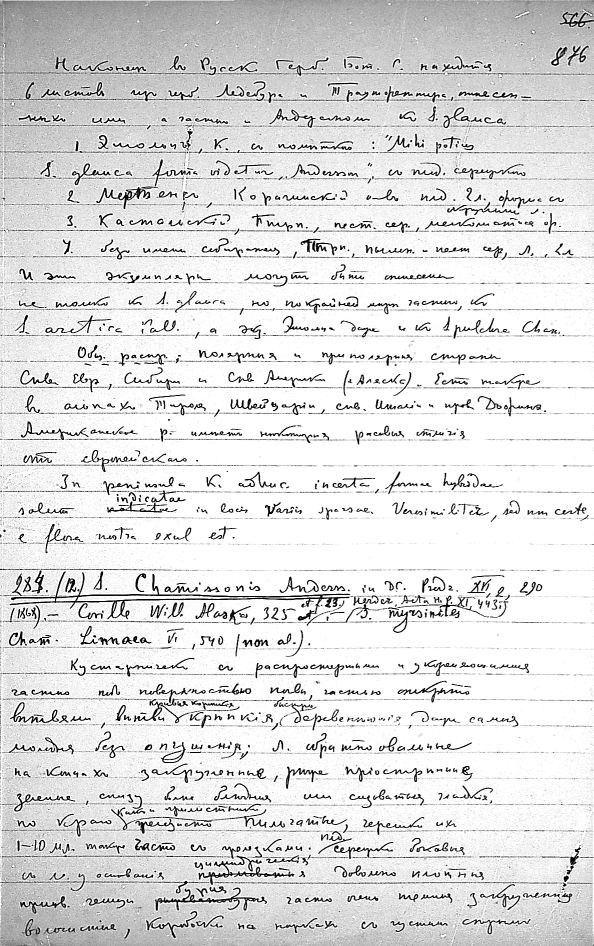 566.
876
Наконец во Русск Герб. Бот. С. находится
6 листов из герб. Ледебура и Траутфеттера, отнесен-
ных ими, а частью и Андерсоном къ S. glauca
1. Эшольц, К., съ помѣткою: "Mihi potius
S. glauca forma videtur, Anderson", съ сережк
2. Мертенс, Корагинскій о-въ пл. ♀, форма съ
3. Кастальскій, Птрп., пест. сер, мелкоматая ф.
4. безъ имени собирателя, Птрп, пест сер, Л.,
И эти экземпляры могутъ быть отнесены
не только къ S. glauca, но, по крайней мѣрѣ частью, къ
S. arctica Pall., а экз. Эшольца даже и къ S pulchra Cham.
Общ. распр.; полярныя и приполярныя страны
Сѣв. Евр, Сибири и Сѣв Америки (Аляска). Есть также
въ альпахъ Тироля, Швейцаріи, сѣв. Италіи и пров Дофинэ.
Американская р. имѣетъ нѣкоторыя расовыя отличія
отъ европейскаго.
In peninsula K. adhuc incerta, formae hybridae
solum indicatae in locis variis sparsae. Verosimiliter, sed non certe,
e flora nostra exul est.
284. (12.) S. Chamissonis Anders. in DC. Prodr. XVI, 2, 290
(1868). — Coville Will. Alaska, 325 f. 23; Herder, Acta H. P. XI, 443; — S. myrsinites
Cham. Linnaea VI, 540 (non al.).
Кустарничекъ съ распростертыми и укореняющимися
частью подъ поверхностью почвы, частью открыто
вѣтвями, вѣтви крѣпкія, деревенѣющія, даже самыя
молодыя безъ опушенія; Л. обратноовальные
на концахъ закругленные, рѣже пріостренные,
зеленые, снизу болѣе блѣдные или сизоватые гладкіе,
по краю железисто пильчатые, черешки ихъ
1–10 мл. также часто съ железками. Сережки боковыя
съ л. у основанія цилиндрическія довольно плотныя
прицв. чешуи бурыя часто очень темныя закругленныя
волосистые, коробочки на ножкахъ съ густымъ сѣрымъ